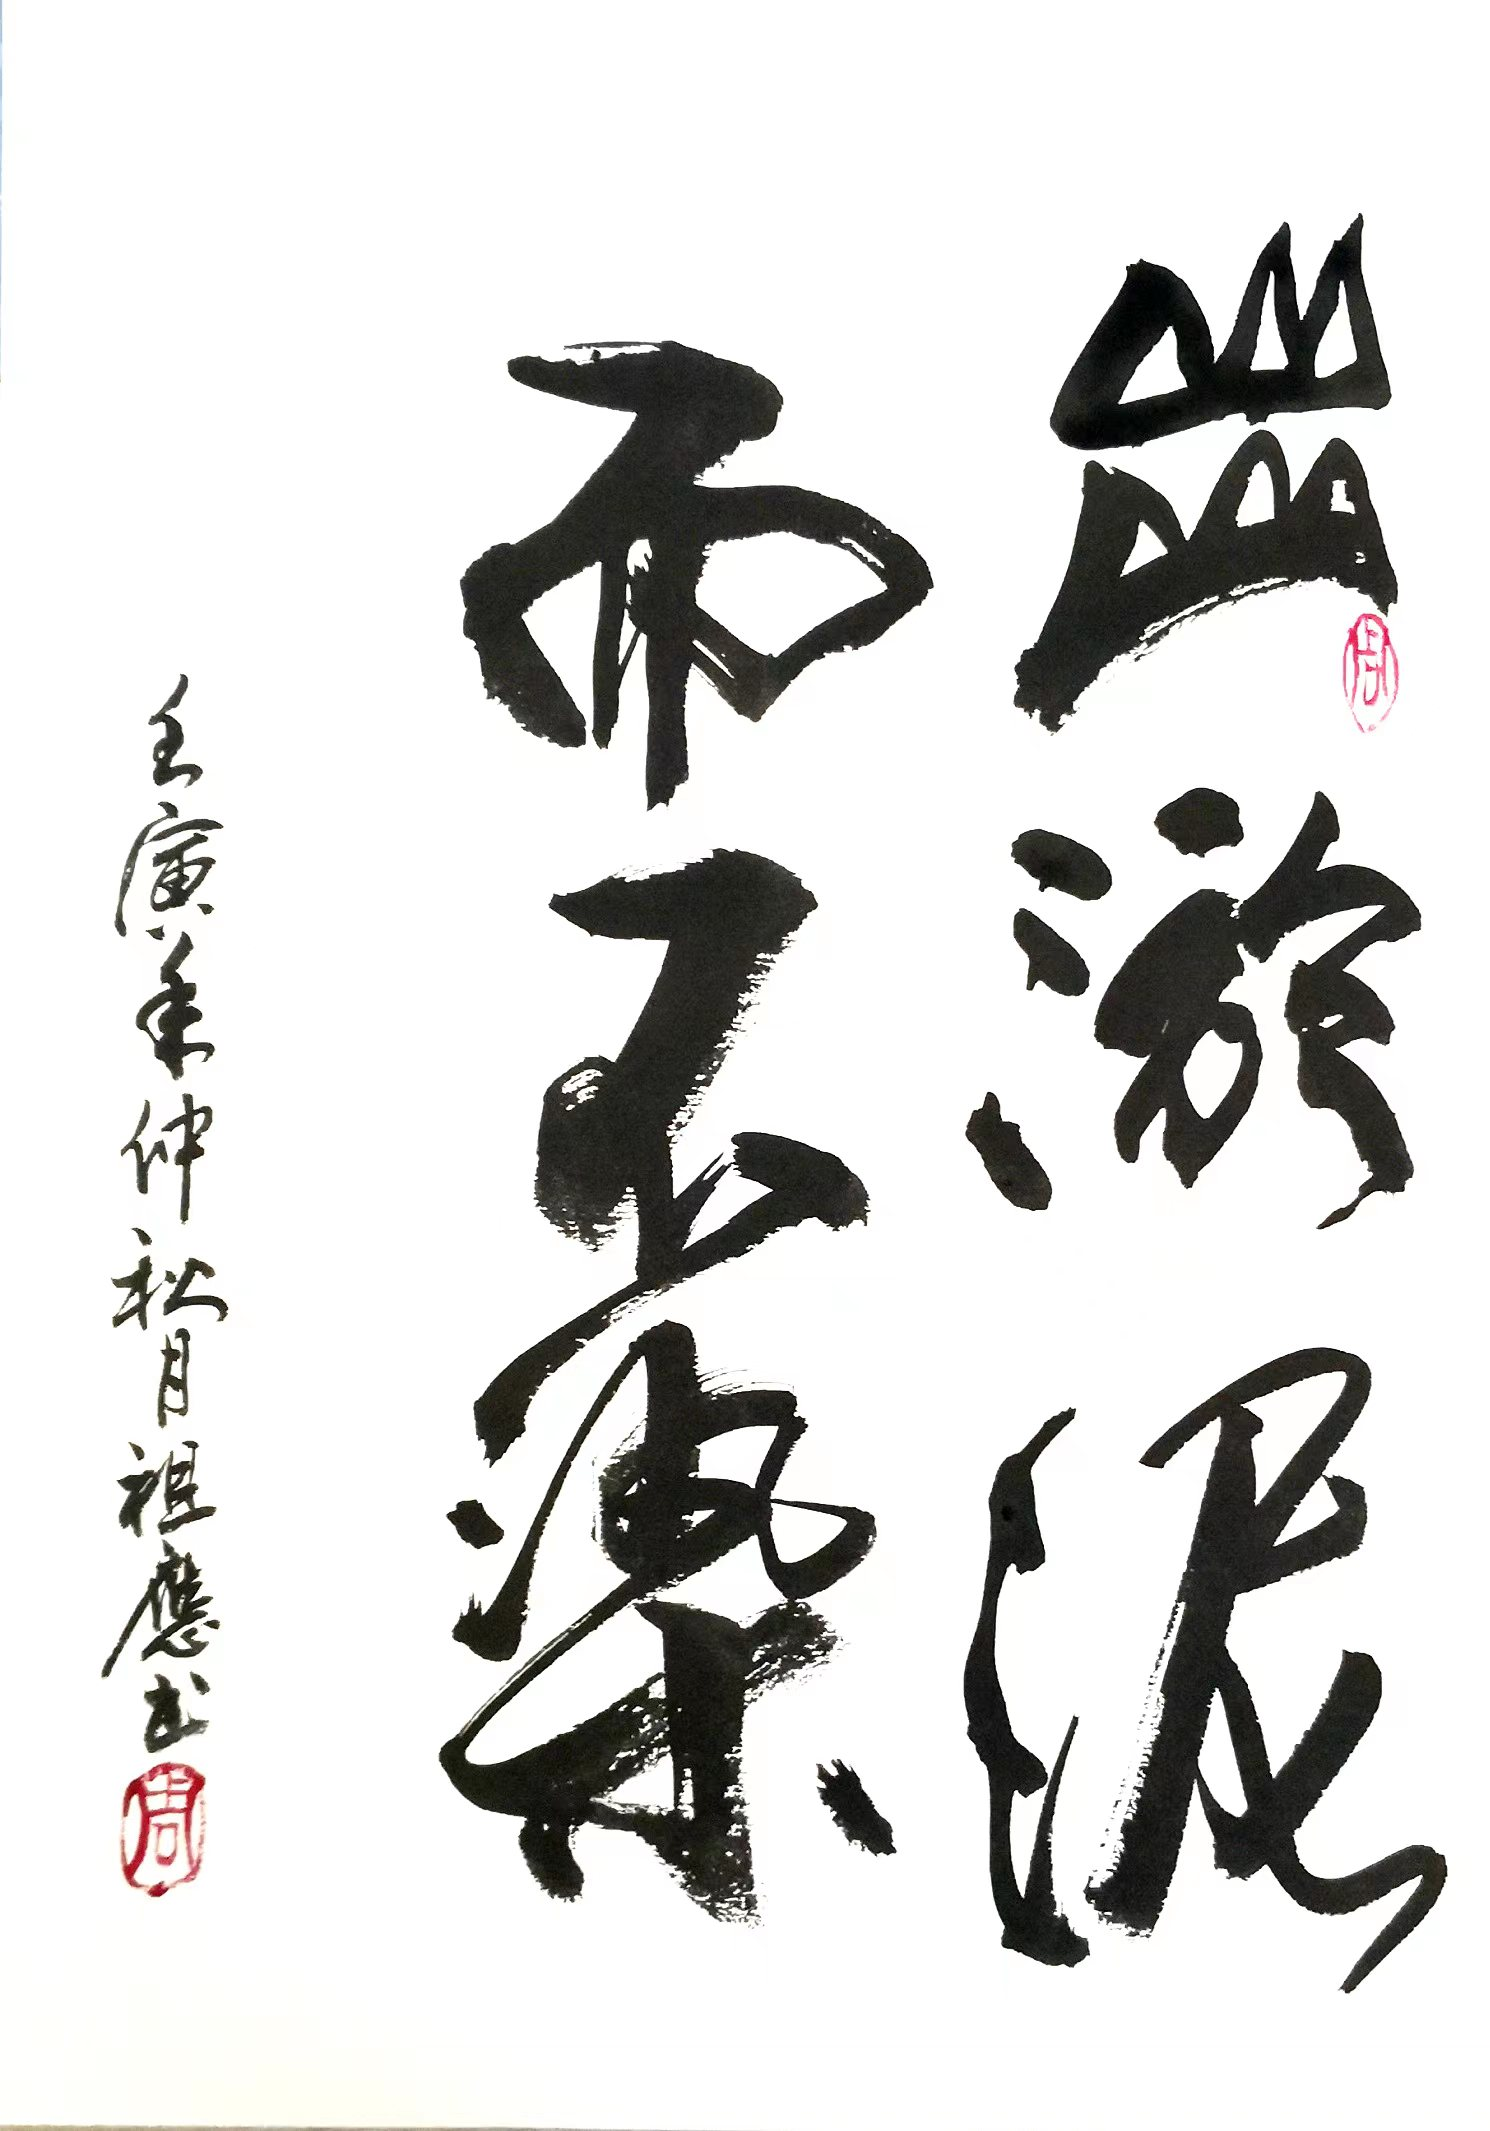 出淤泥
周
而不染
壬寅年仲秋月祖應书
周